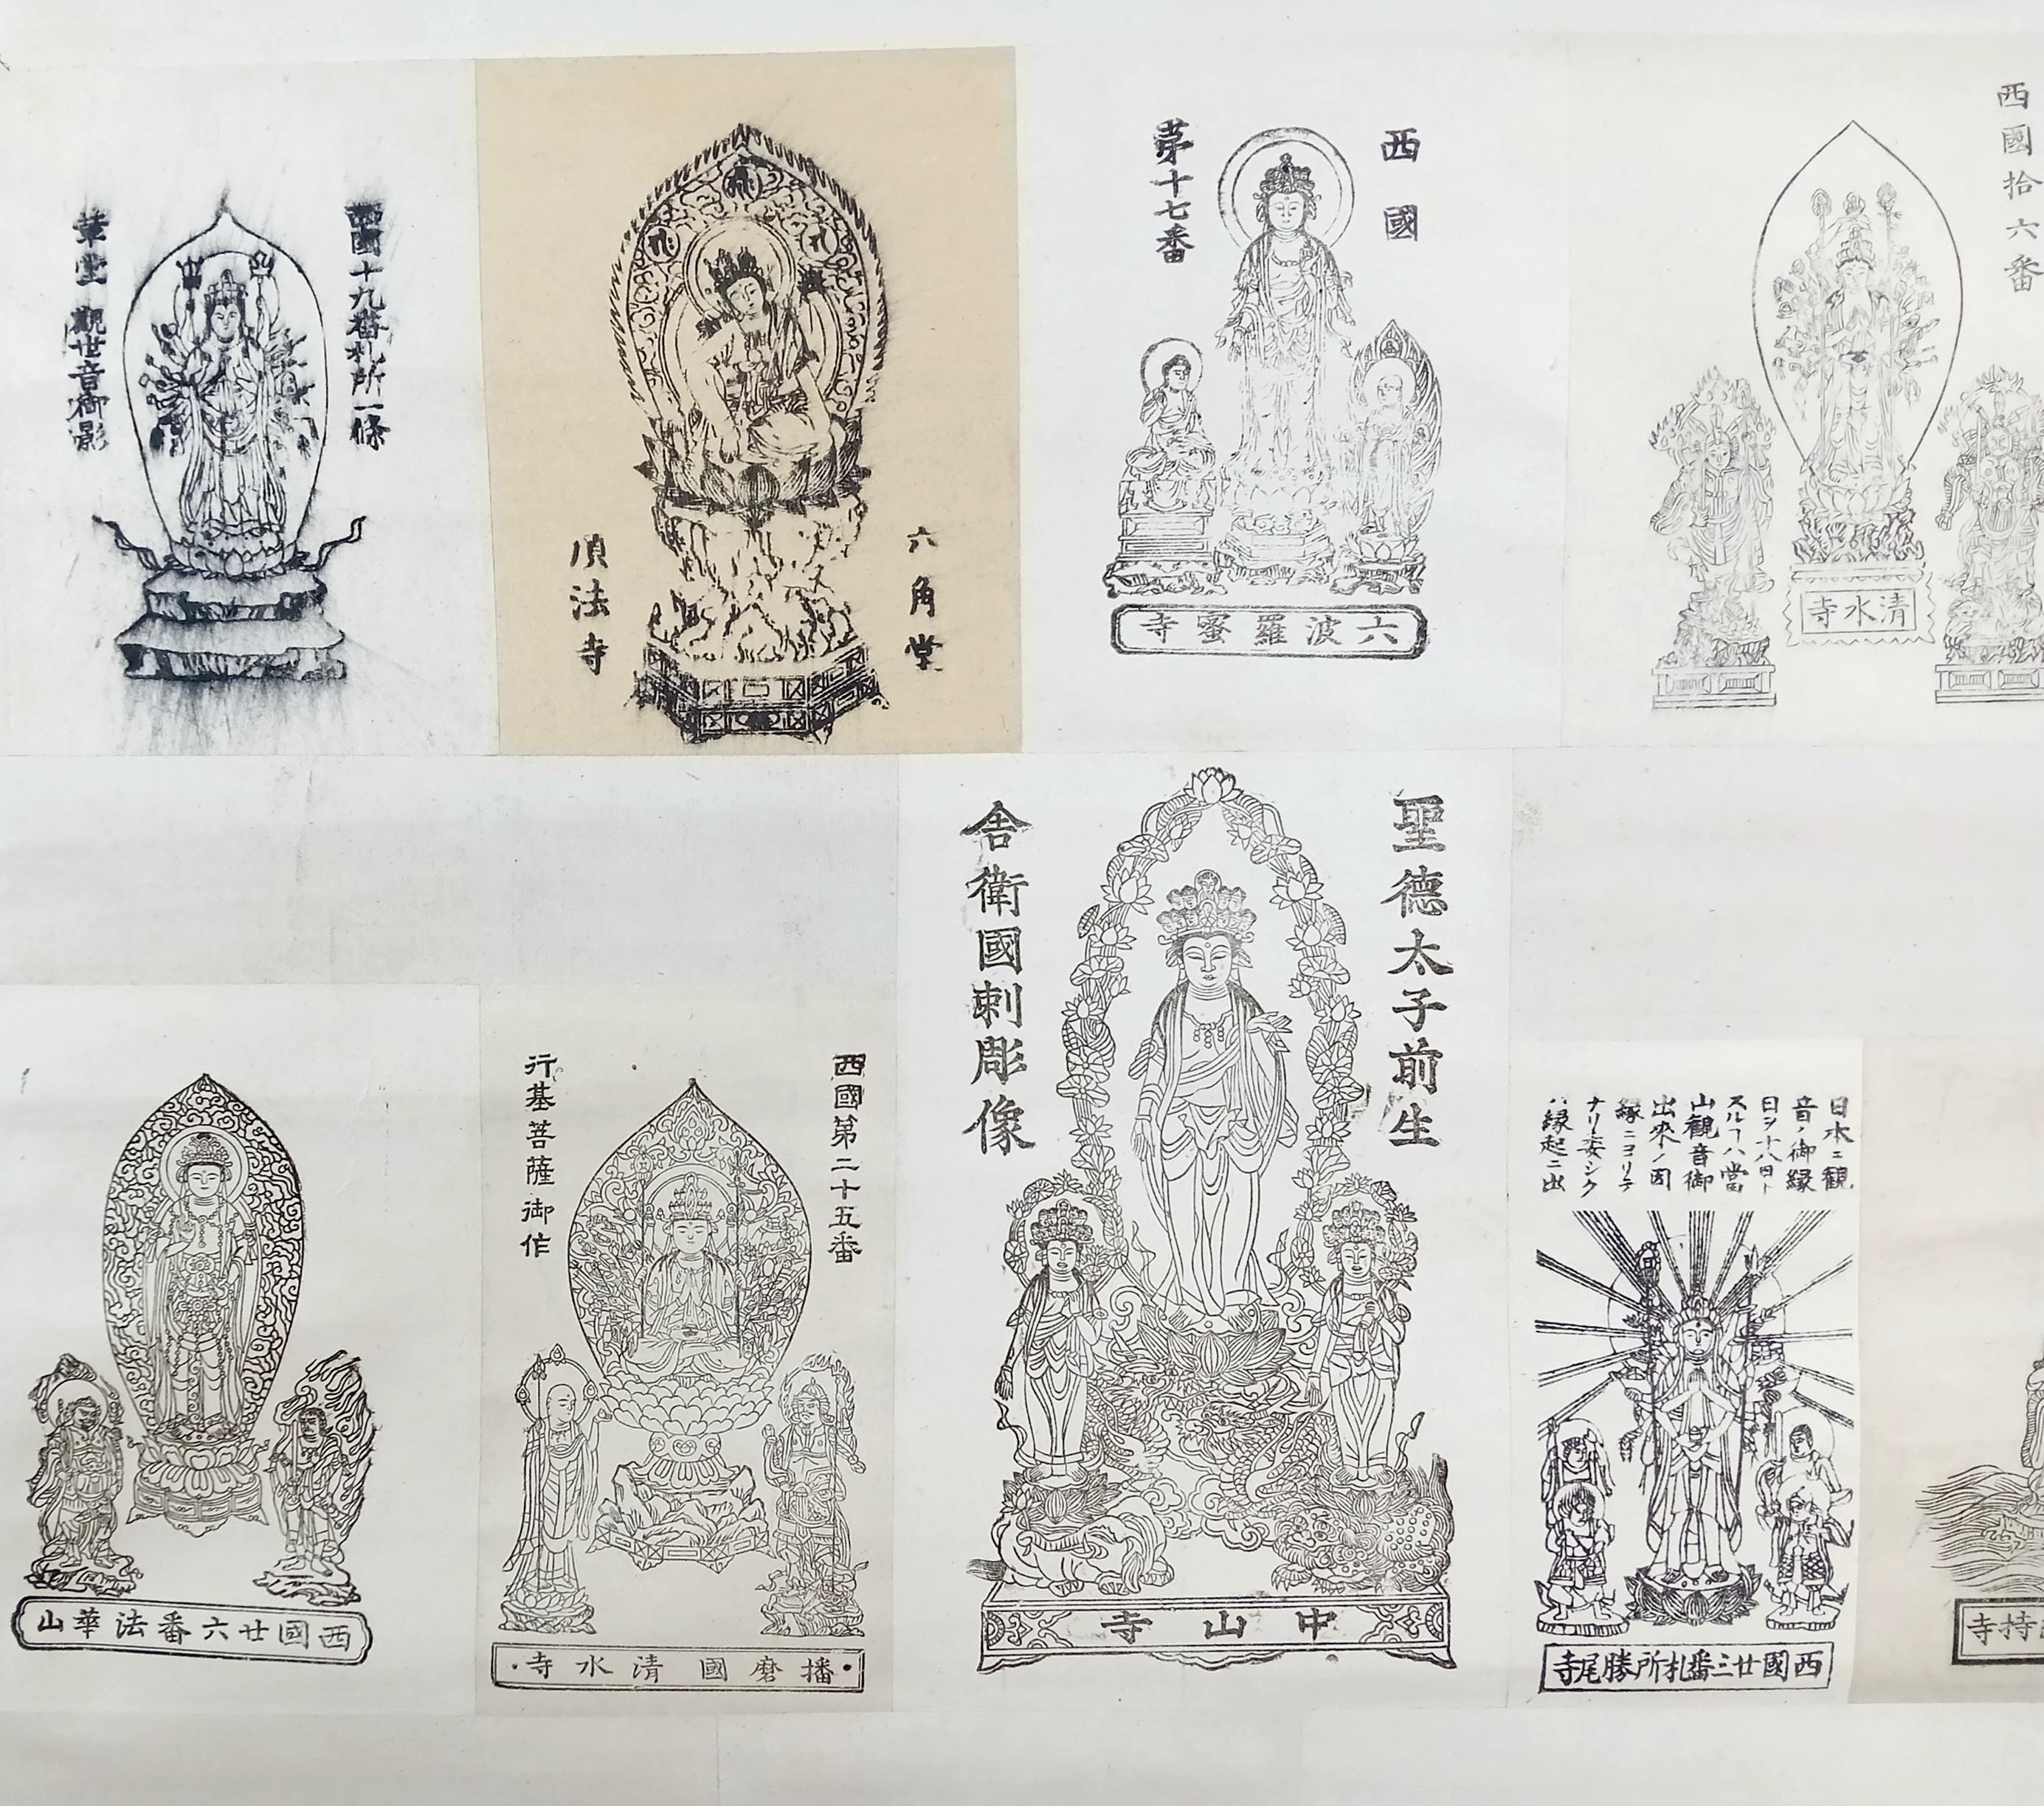 西國十九番札所一條
華堂 觀世音御影
六角堂
頂法寺
西國
第十七番
六波羅蜜寺
西國拾六番
清水寺
西國廿六番法華山
西國第二十五番
行基菩薩御作
播磨國 清水寺
聖德太子前生
舍衛國刺彫像
中山寺
日水ニ観
音ノ御縁
日ヲ十八日ト
スルフハ當
山観音御
出來ノ因
縁ニヨリテ
ナリ委シク
ハ縁起ニ出
西國廿三番札所勝尾寺
持寺